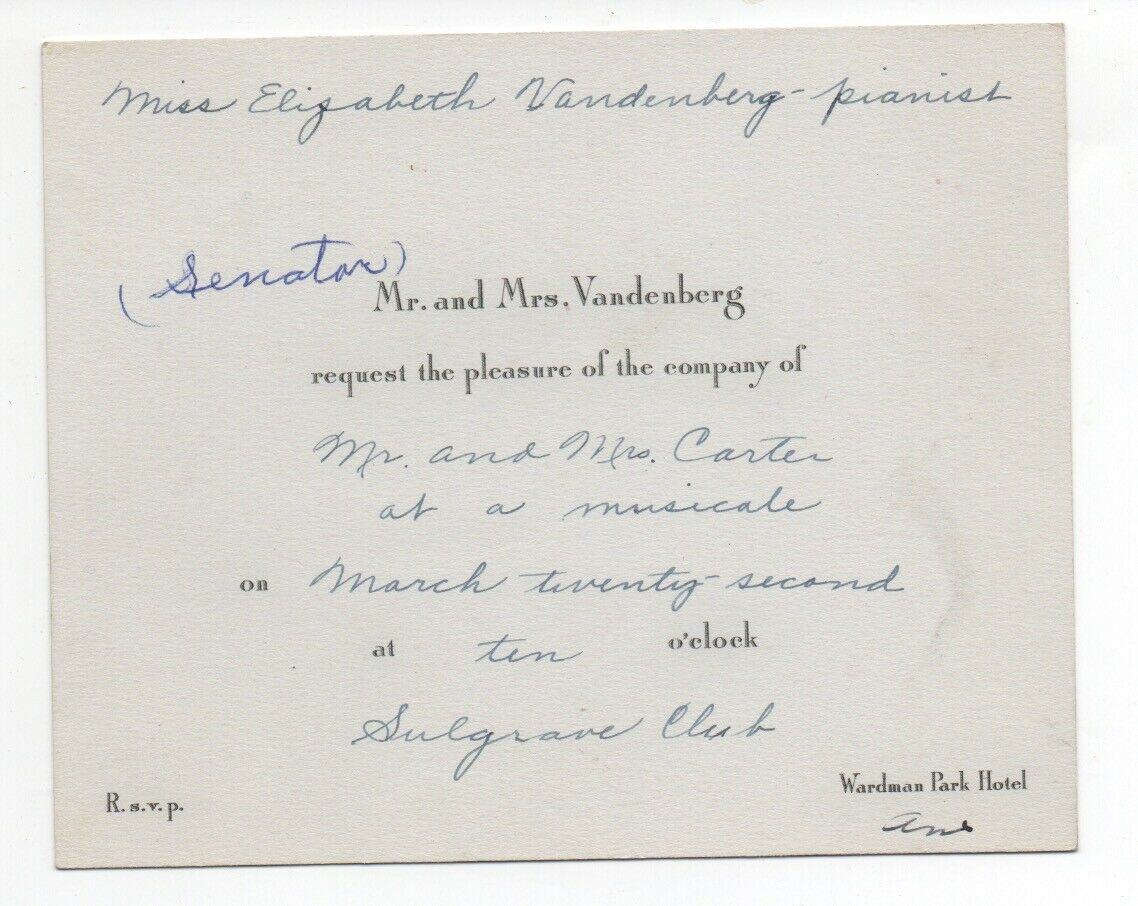 Miss Elizabeth Vandenberg - pianist
(Senator)
Mr. and Mrs. Vandenberg
request the pleasure of the company of
Mr. and Mrs. Carter
at a musicale
on March twenty-second
at ten o'clock
Sulgrave Club
Wardman Park Hotel
R.s.v.p.